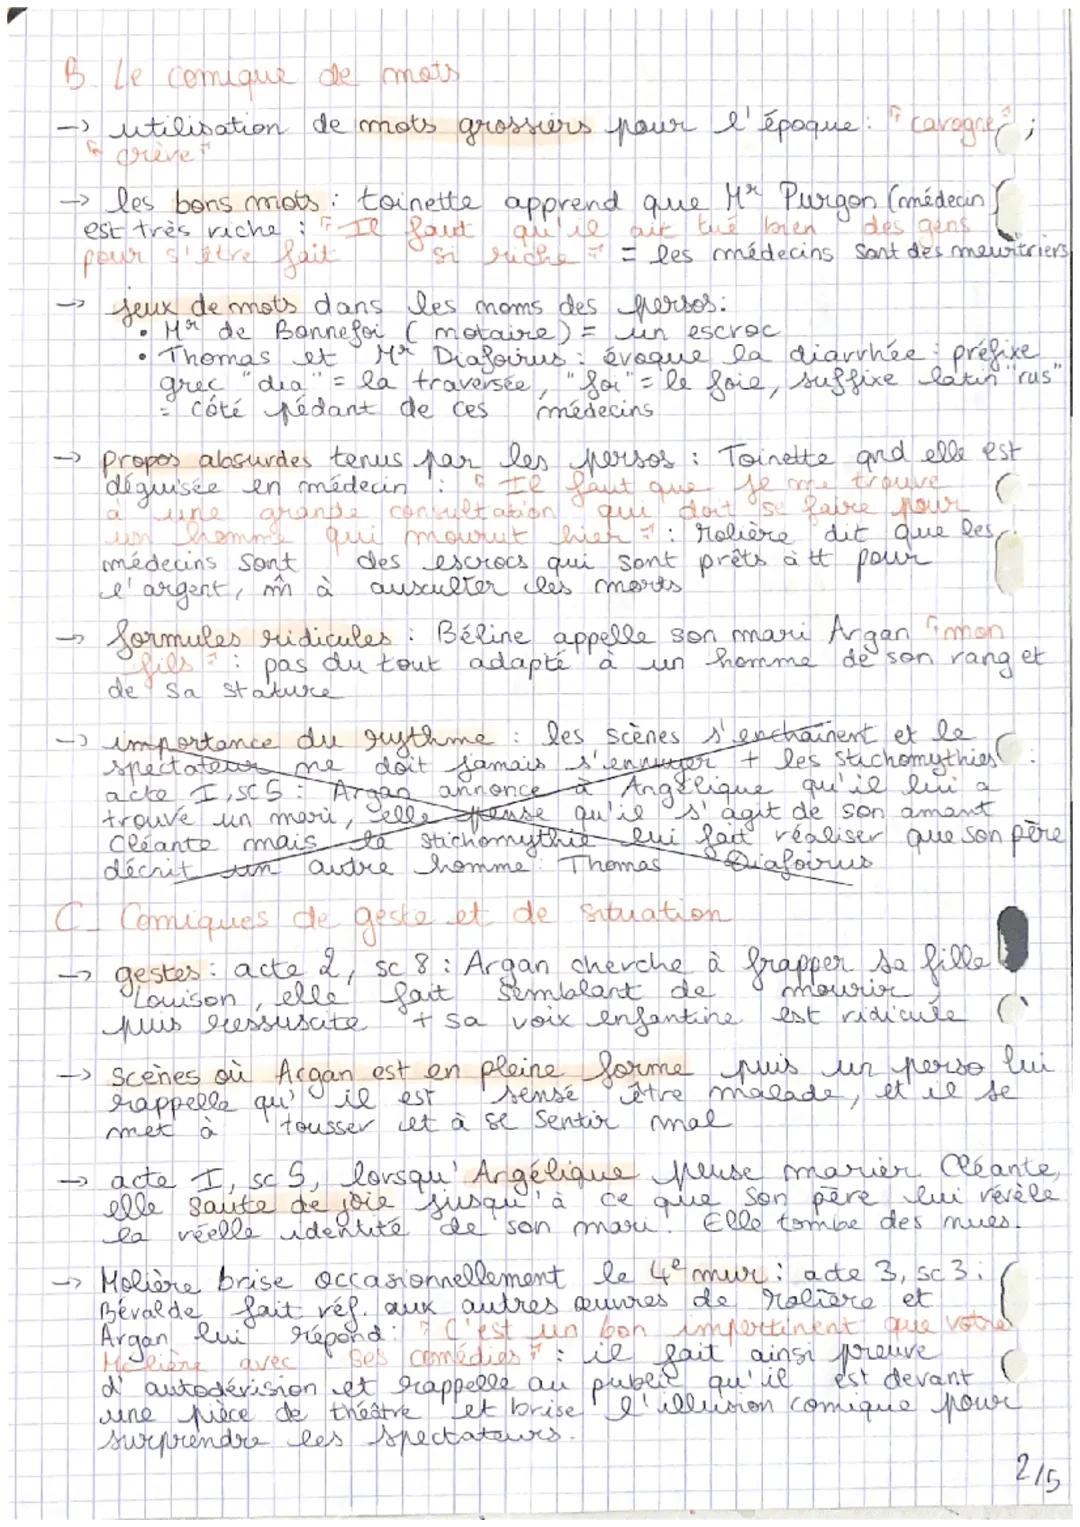 B. Le comique de mots
-> utilisation de mots grossiers pour l'époque : "carogne" ;
"crève"
-> les bons mots : toinette apprend que Mr Purgon (médecin)
est très riche : "Il faut qu'il ait tué bien des gens
pour s'être fait si riche" = les médecins sont des meurtriers
-> jeux de mots dans les noms des persos :
• Mr de Bonnefoi (notaire) = un escroc
• Thomas et Mr Diafoirus : évoque la diarrhée : préfixe
grec "dia" = la traversée, "foi" = le foie, suffixe latin "rus"
= côté pédant de ces médecins
-> propos absurdes tenus par les persos : Toinette qnd elle est
déguisée en médecin : "Il faut que je me trouve
à une grande consultation qui doit se faire pour
un homme qui mourut hier" : Molière dit que les
médecins sont des escrocs qui sont prêts à tt pour
l'argent, m̂ à ausculter les morts
-> formules ridicules : Béline appelle son mari Argan "mon
fils" : pas du tout adapté à un homme de son rang et
de sa stature
-> importance du rythme : les scènes s'enchaînent et le
spectateur ne doit jamais s'ennuyer + les stichomythies :
acte I, sc 5 : Argan annonce à Angélique qu'il lui a
trouvé un mari, elle pense qu'il s'agit de son amant
Cléante mais la stichomythie lui fait réaliser que son père
décrit un autre homme Thomas Diafoirus
C_ Comiques de geste et de situation
-> gestes : acte 2, sc 8 : Argan cherche à frapper sa fille
Louison, elle fait semblant de mourir
puis ressuscite + sa voix enfantine est ridicule
-> scènes où Argan est en pleine forme puis un perso lui
rappelle qu'il est sensé être malade, et il se
met à tousser et à se sentir mal
-> acte I, sc 5, lorsqu'Angélique pense marier Cléante,
elle saute de joie jusqu'à ce que son père lui révèle
la réelle identité de son mari. Elle tombe des nues.
-> Molière brise occasionnellement le 4e mur : acte 3, sc 3 :
Béralde fait réf. aux autres œuvres de Molière et
Argan lui répond : "C'est un bon impertinent que votre
Molière avec ses comédies" : il fait ainsi preuve
d'autodérision et rappelle au public qu'il est devant
une pièce de théâtre et brise l'illusion comique pour
surprendre les spectateurs.
2/5